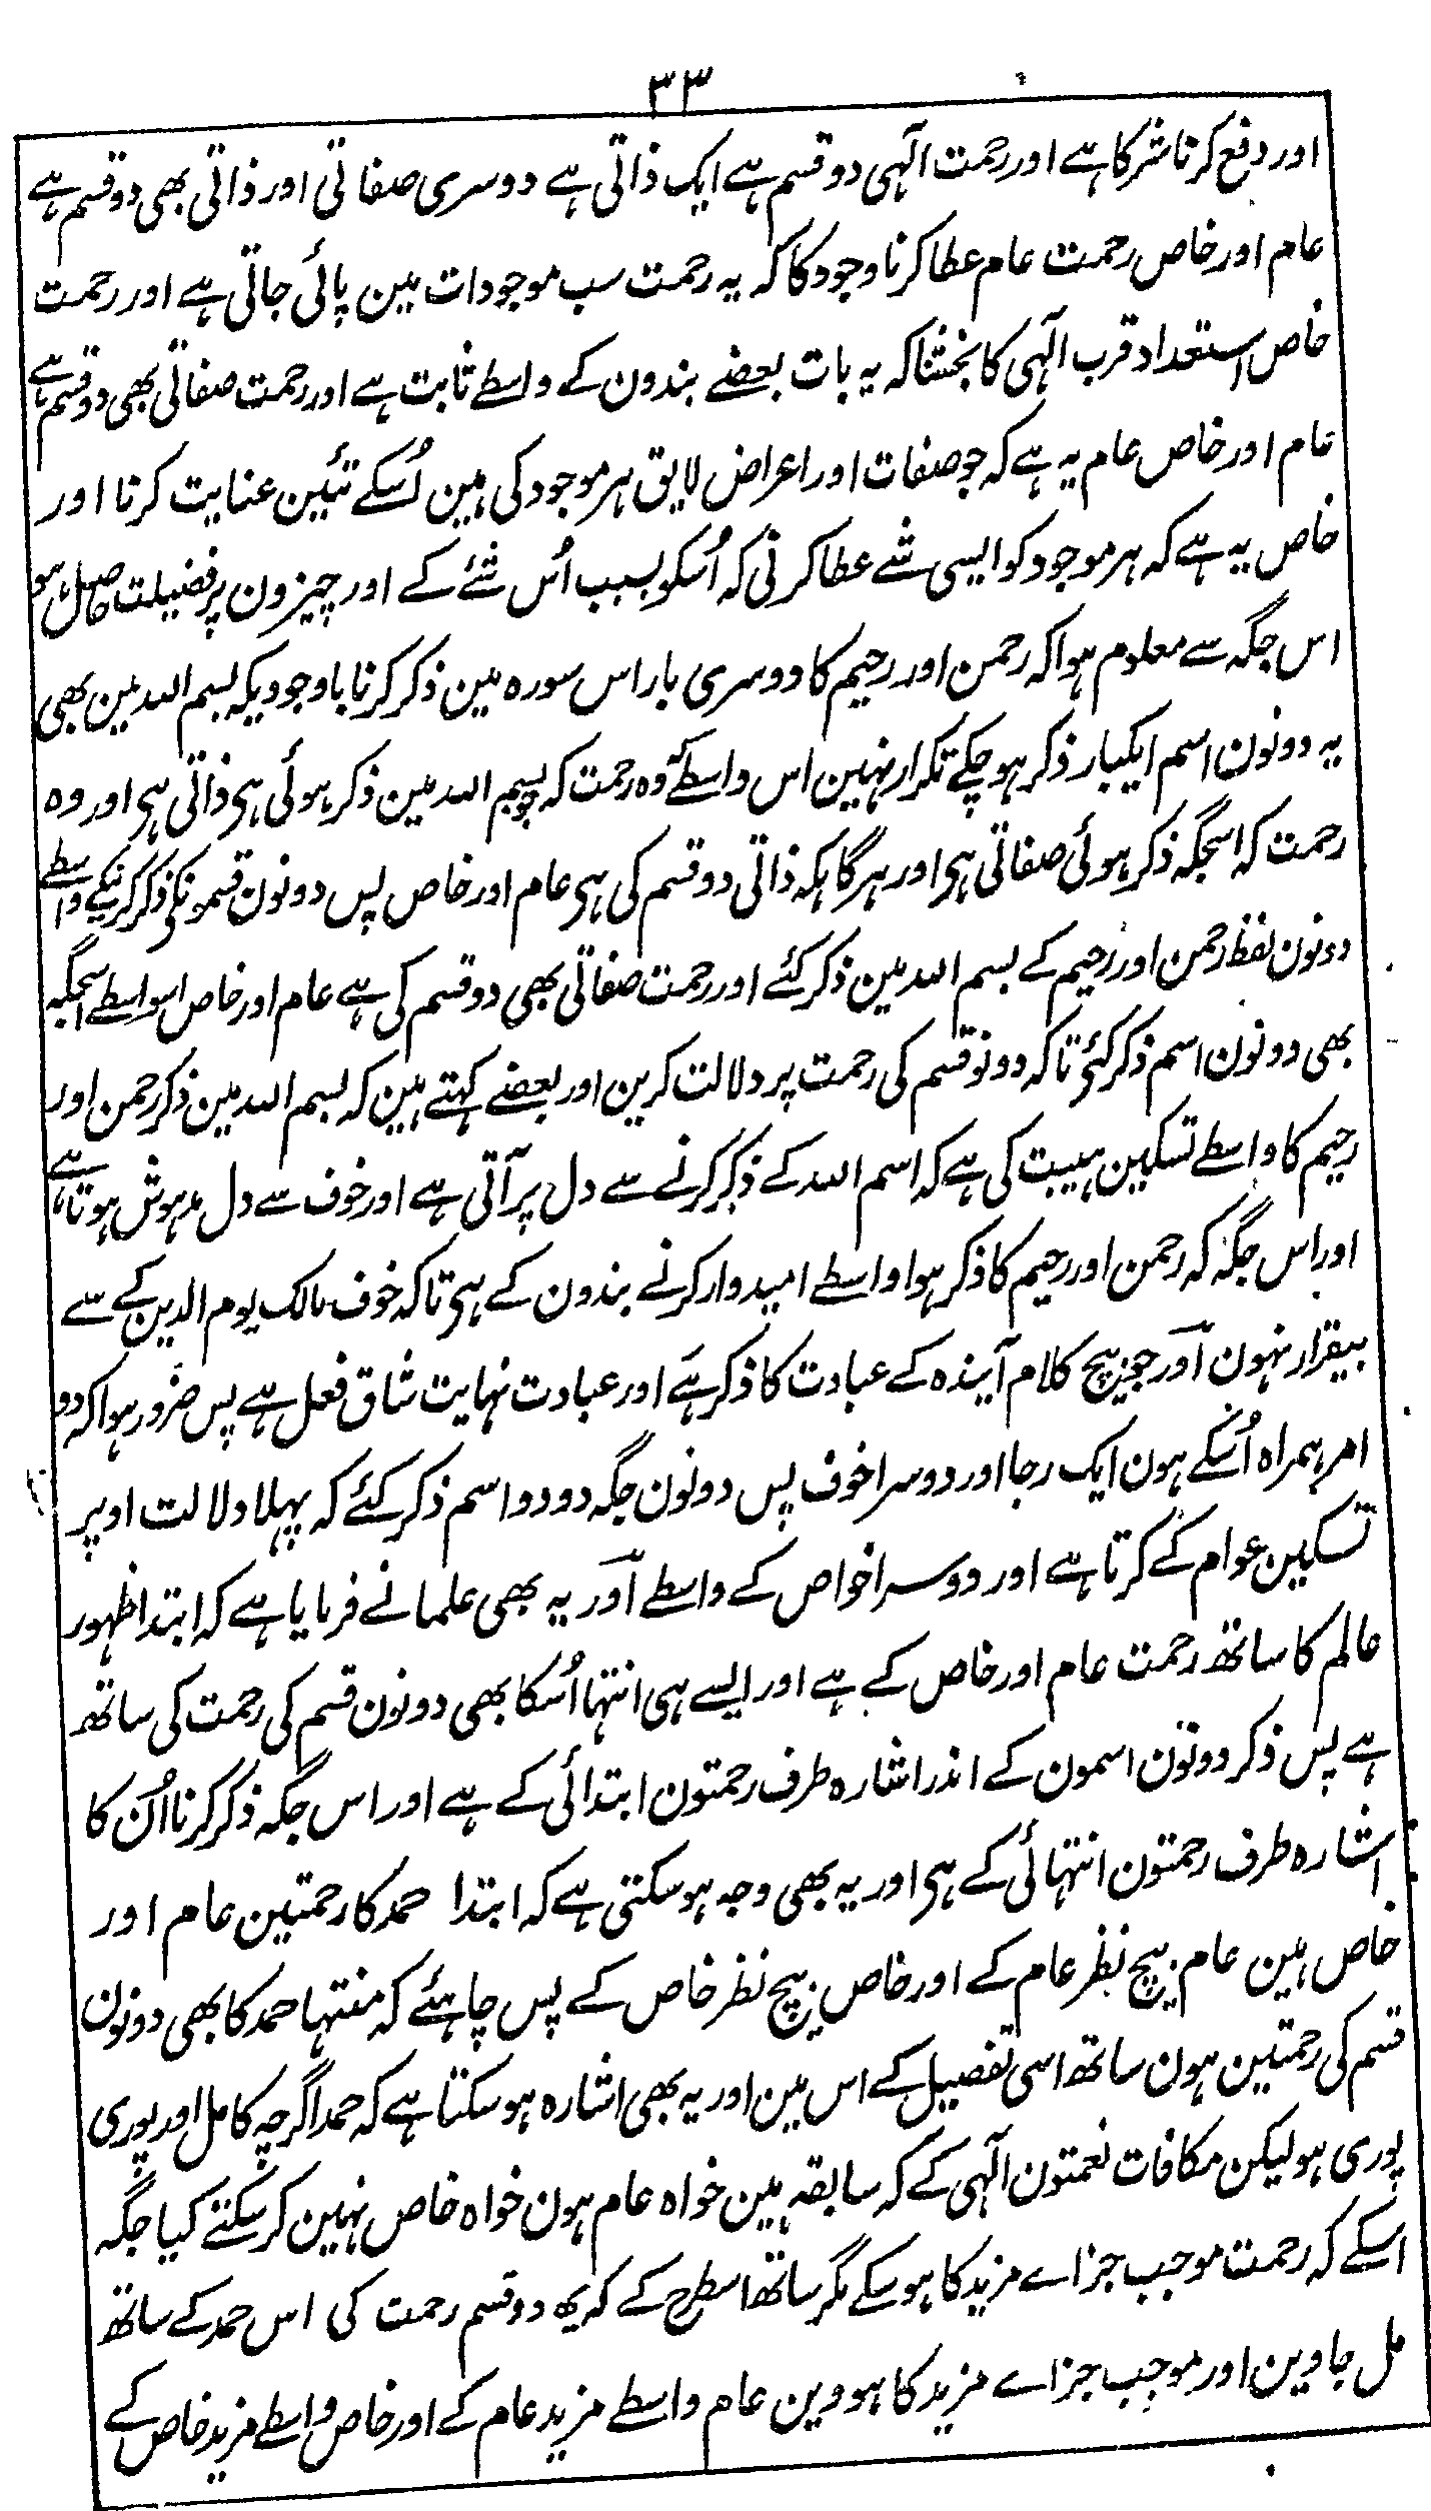 ۳۳
اور دفع کرنا شر کا ہے اور رحمت الٰہی دو قسم ہے ایک ذاتی ہے دوسری صفاتی اور ذاتی بھی دو قسم ہے
عام اور خاص رحمت عام عطا کرنا وجود کا کہ یہ رحمت سب موجودات مین پائی جاتی ہے اور رحمت
خاص استعداد قرب الٰہی کا بخشنا کہ یہ بات بعضے بندون کے واسطے ثابت ہے اور رحمت صفاتی بھی دو قسم ہے
عام اور خاص عام یہ ہے کہ جو صفات اور اعراض لایق ہر موجود کی ہین اُسکے تئین عنایت کرنا اور
خاص یہ ہے کہ ہر موجود کو ایسی شے عطا کرنی کہ اُسکو بسبب اُس شئے کے اور چیزون پر فضیلت حاصل ہو
اس جگہ سے معلوم ہوا کہ رحمن اور رحیم کا دوسری بار اس سورہ مین ذکر کرنا باوجودیکہ بسم اللہ مین بھی
یہ دونون اسم ایکبار ذکر ہو چکے تکرار نہین اس واسطے کہ وہ رحمت کہ جو بسم اللہ مین ذکر ہوئی ہی ذاتی ہی اور وہ
رحمت کہ اسجگہ ذکر ہوئی صفاتی ہی اور ہر گاہ کہ ذاتی دو قسم کی ہی عام اور خاص پس دونون قسمونکی ذکر کرنیکے واسطے
دونون لفظ رحمن اور رحیم کے بسم اللہ مین ذکر کئے اور رحمت صفاتی بھی دو قسم کی ہے عام اور خاص اسواسطے اسجگہ
بھی دونون اسم ذکر کئے تاکہ دونو قسم کی رحمت پر دلالت کرین اور بعضے کہتے ہین کہ بسم اللہ مین ذکر رحمن اور
رحیم کا واسطے تسکین ہیبت کی ہے کہ اسم اللہ کے ذکر کرنے سے دل پر آتی ہے اور خوف سے دل مدہوش ہوتا ہے
اور اس جگہ کہ رحمن اور رحیم کا ذکر ہوا واسطے امیدوار کرنے بندون کے ہی تاکہ خوف مالک یوم الدین کے سے
بیقرار نہون اور جو بیچ کلام آیندہ کے عبادت کا ذکر ہے اور عبادت نہایت شاق فعل ہے پس ضرور ہوا کہ دو
امر ہمراہ اُسکے ہون ایک رجا اور دوسرا خوف پس دونون جگہ دو دو اسم ذکر کئے کہ پہلا دلالت اوپر
تسکین عوام کے کرتا ہے اور دوسرا خواص کے واسطے اور یہ بھی علمانے فرمایا ہے کہ ابتدا ظہور
عالم کا ساتھ رحمت عام اور خاص کے ہے اور ایسے ہی انتہا اُسکا بھی دونون قسم کی رحمت کی ساتھ
ہے پس ذکر دونون اسمون کے اندر اشارہ طرف رحمتون ابتدائی کے ہے اور اس جگہ ذکر کرنا اُن کا
اشارہ طرف رحمتون انتہائی کے ہی اور یہ بھی وجہ ہو سکتی ہے کہ ابتدا حمد کا رحمتین عام اور
خاص ہین عام بیچ نظر عام کے اور خاص بیچ نظر خاص کے پس چاہئے کہ منتہا حمد کا بھی دونون
قسم کی رحمتین ہون ساتھ اسی تفصیل کے اس مین اور یہ بھی اشارہ ہو سکتا ہے کہ حمد اگرچہ کامل اور پوری
پوری ہو لیکن مکافات نعمتون الٰہی کے کہ سابقہ ہین خواہ عام ہون خواہ خاص نہین کر سکتے کیا جگہ
اسکے کہ رحمت موجب جزاے مزید کا ہو سکے مگر ساتھ اسطرح کے کہ یہ دو قسم رحمت کی اس حمد کے ساتھ
مل جاوین اور موجب جزاے مزید کا ہووین عام واسطے مزید عام کے اور خاص واسطے مزید خاص کے